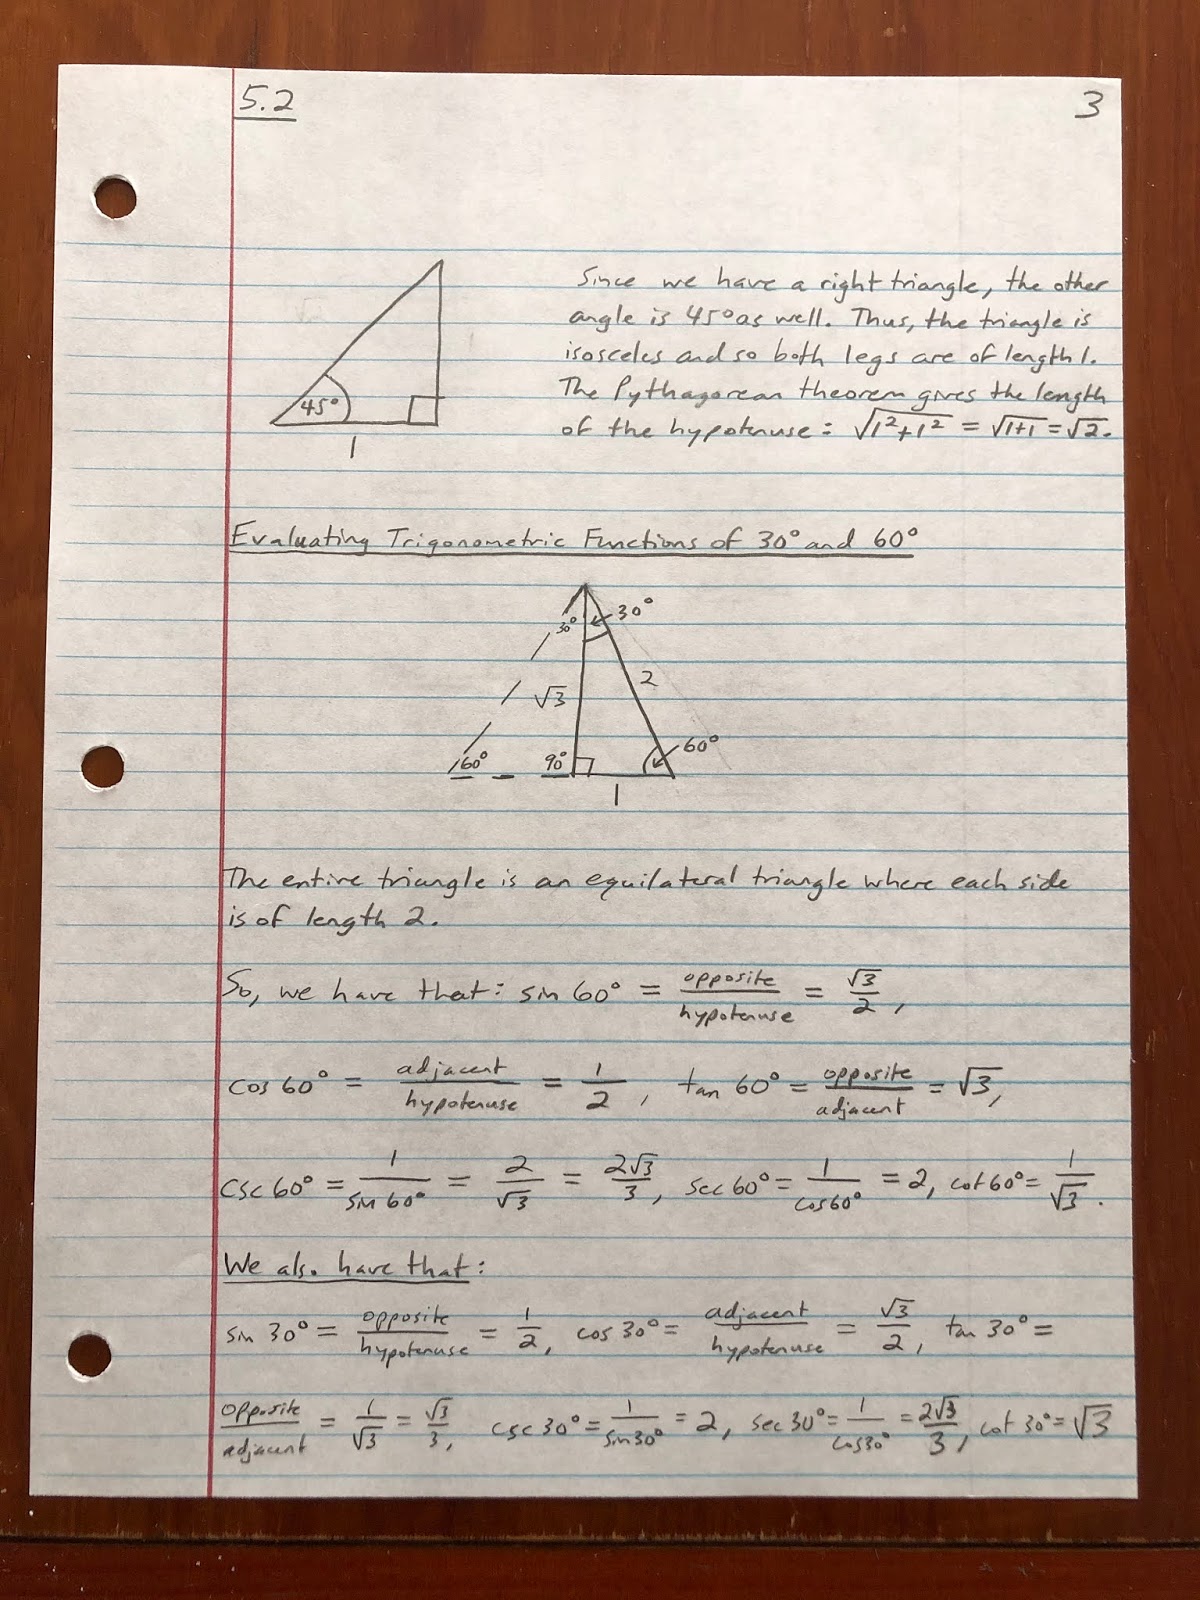 5.2 3
Since we have a right triangle, the other
angle is 45° as well. Thus, the triangle is
isosceles and so both legs are of length 1.
The Pythagorean theorem gives the length
of the hypotenuse: √(1²+1²) = √(1+1) = √2.
45°
1
Evaluating Trigonometric Functions of 30° and 60°
30° 30°
√3 2
60° 90° 60°
1
The entire triangle is an equilateral triangle where each side
is of length 2.
So, we have that: sin 60° = opposite/hypotenuse = √3/2,
cos 60° = adjacent/hypotenuse = 1/2, tan 60° = opposite/adjacent = √3,
csc 60° = 1/sin 60° = 2/√3 = 2√3/3, sec 60° = 1/cos 60° = 2, cot 60° = 1/√3.
We also have that:
sin 30° = opposite/hypotenuse = 1/2, cos 30° = adjacent/hypotenuse = √3/2, tan 30° =
opposite/adjacent = 1/√3 = √3/3, csc 30° = 1/sin 30° = 2, sec 30° = 1/cos 30° = 2√3/3, cot 30° = √3